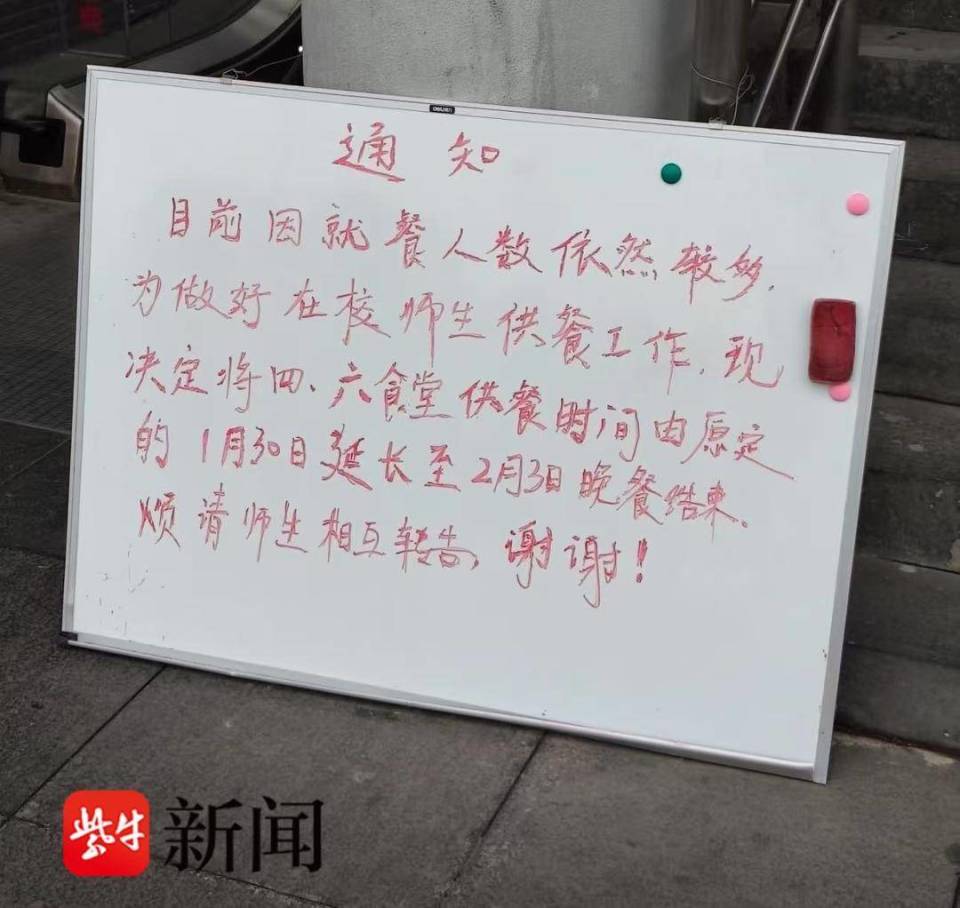 通知
目前因就餐人数依然较多,
为做好在校师生供餐工作,现
决定将四、六食堂供餐时间由原定
的1月30日延长至2月3日晚餐结束。
烦请师生相互转告,谢谢!
紫牛新闻